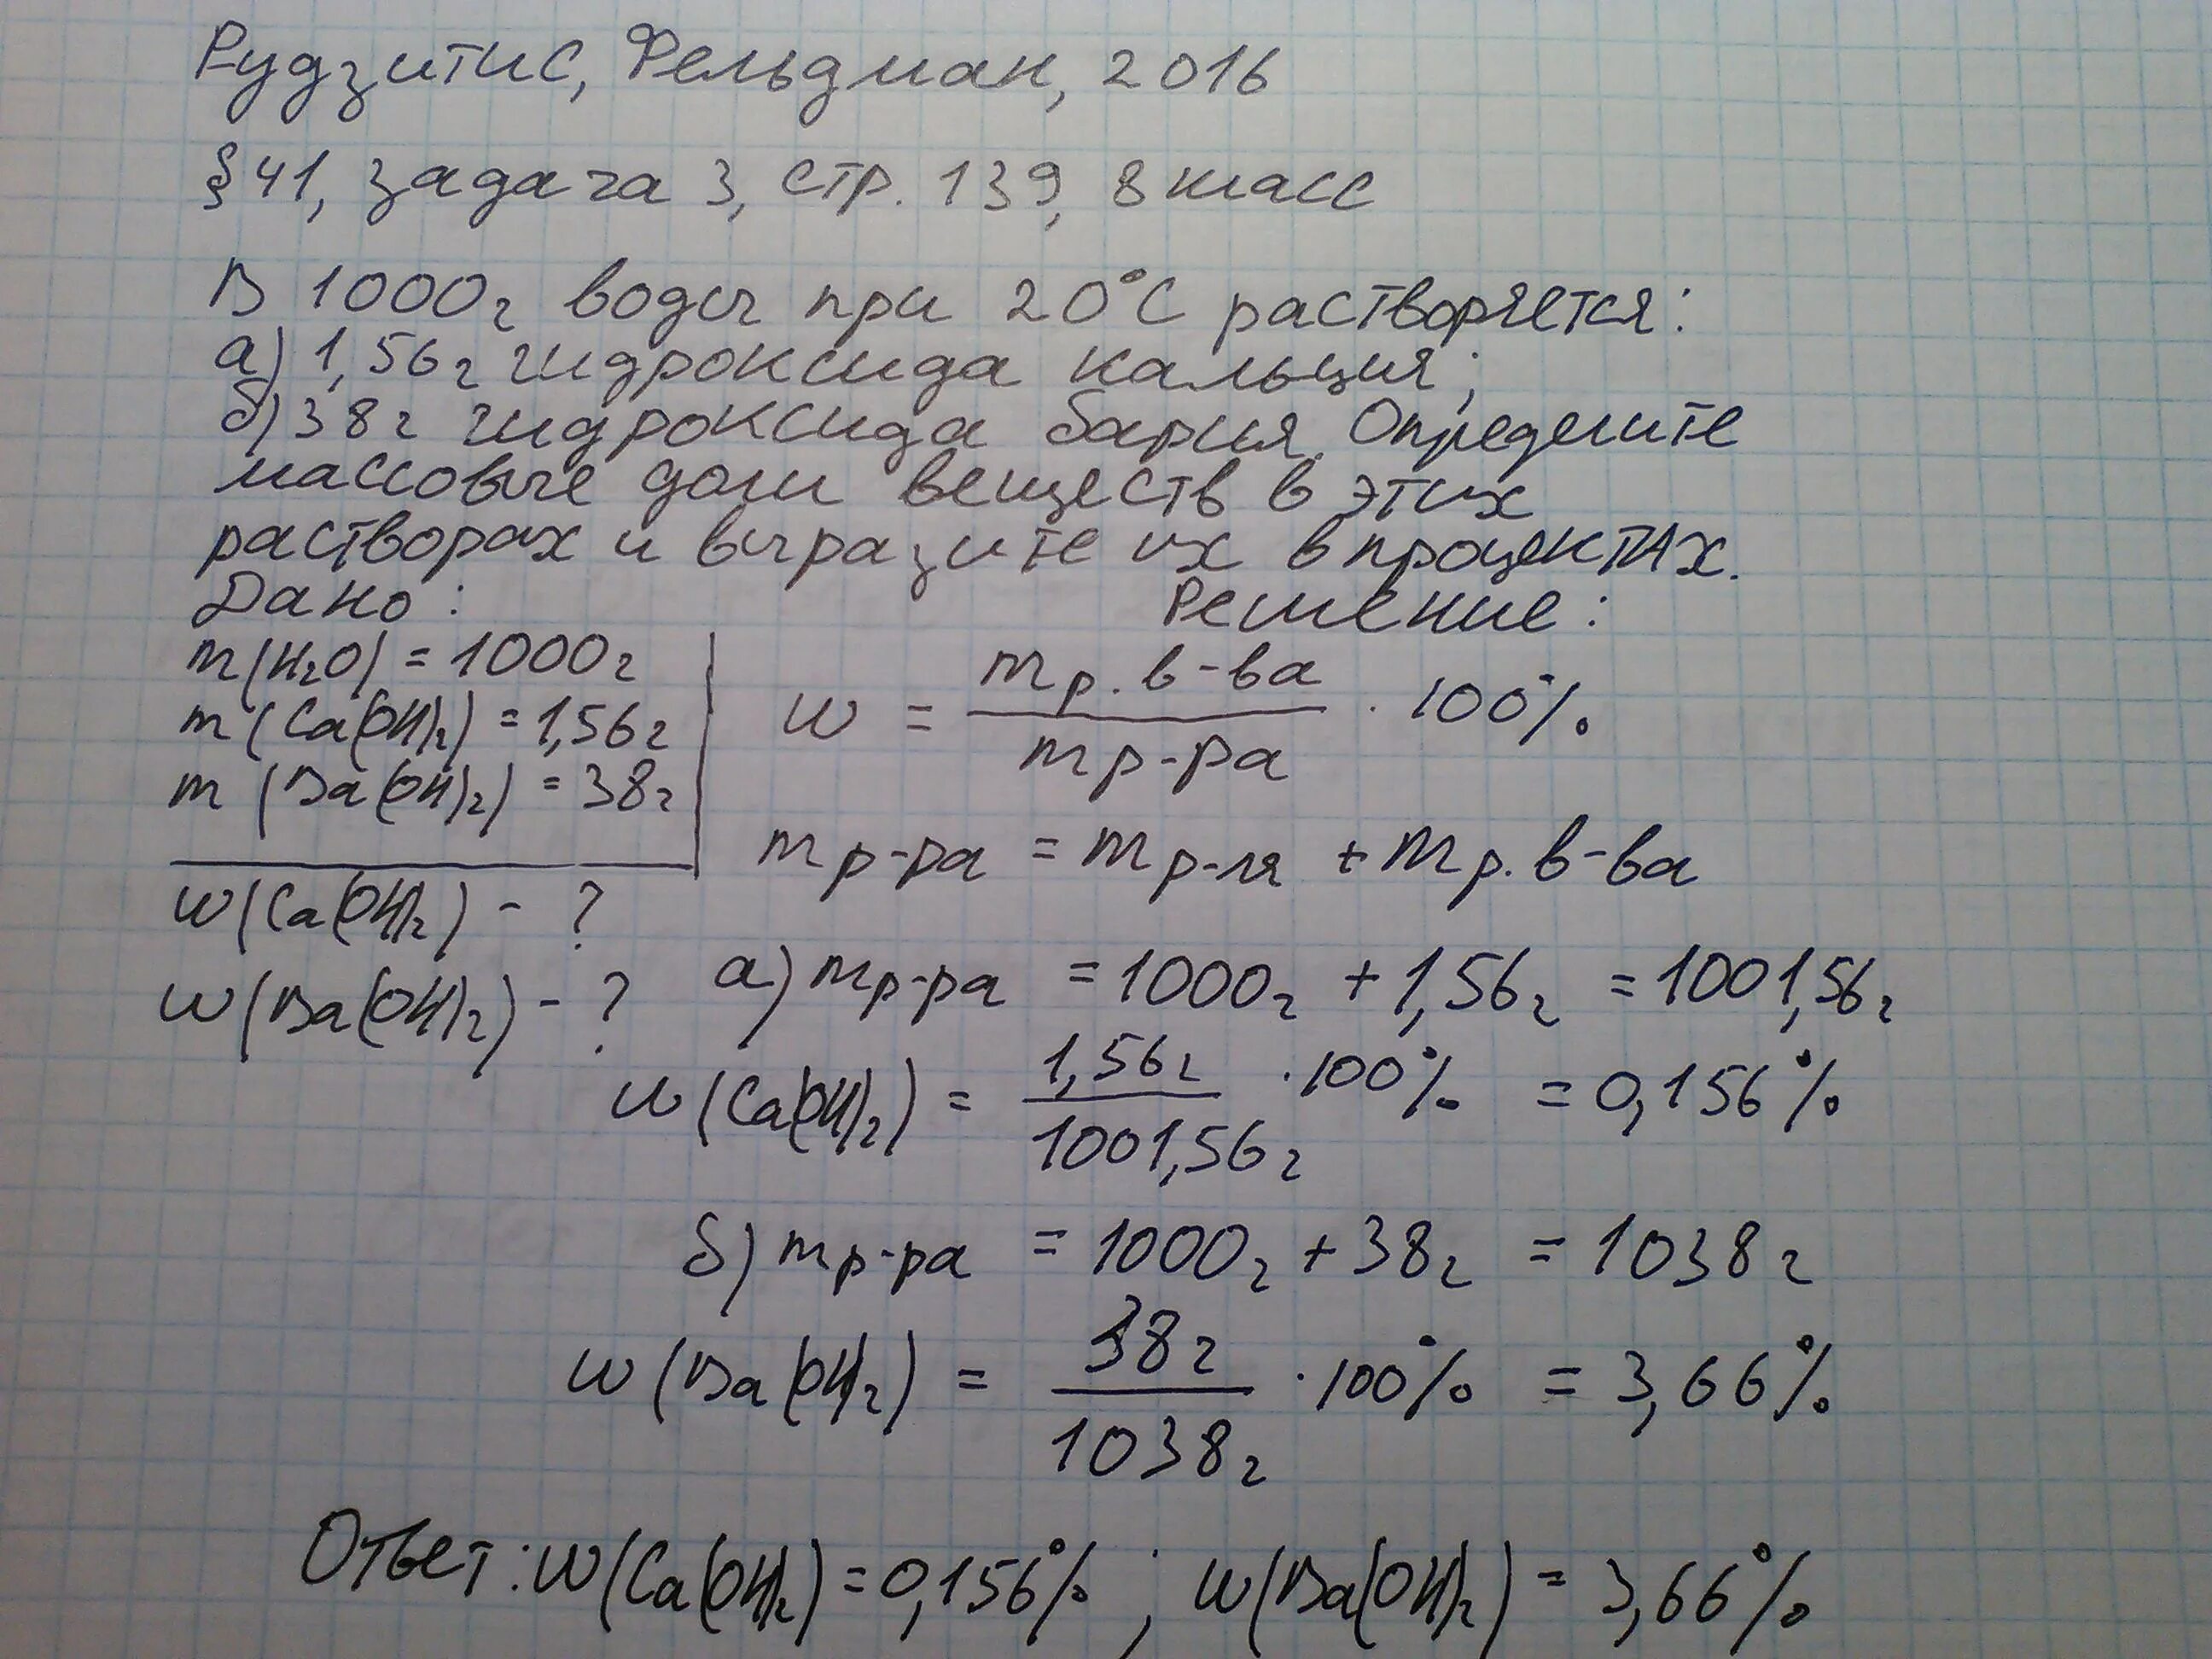 Рудзитис, Фельдман, 2016
§41, задача 3, стр. 139, 8 класс
В 1000г воды при 20°С растворяется:
а) 1,56г гидроксида кальция;
б) 38г гидроксида бария. Определите
массовые доли веществ в этих
растворах и выразите их в процентах.
Дано:
m(H₂O) = 1000г
m(Ca(OH)₂) = 1,56г
m(Ba(OH)₂) = 38г
w(Ca(OH)₂) - ?
w(Ba(OH)₂) - ?
Решение:
w = mр.в-ва / mр-ра · 100%
mр-ра = mр-ля + mр.в-ва
а) mр-ра = 1000г + 1,56г = 1001,56г
w(Ca(OH)₂) = 1,56г / 1001,56г · 100% = 0,156%
б) mр-ра = 1000г + 38г = 1038г
w(Ba(OH)₂) = 38г / 1038г · 100% = 3,66%
Ответ: w(Ca(OH)₂) = 0,156%; w(Ba(OH)₂) = 3,66%